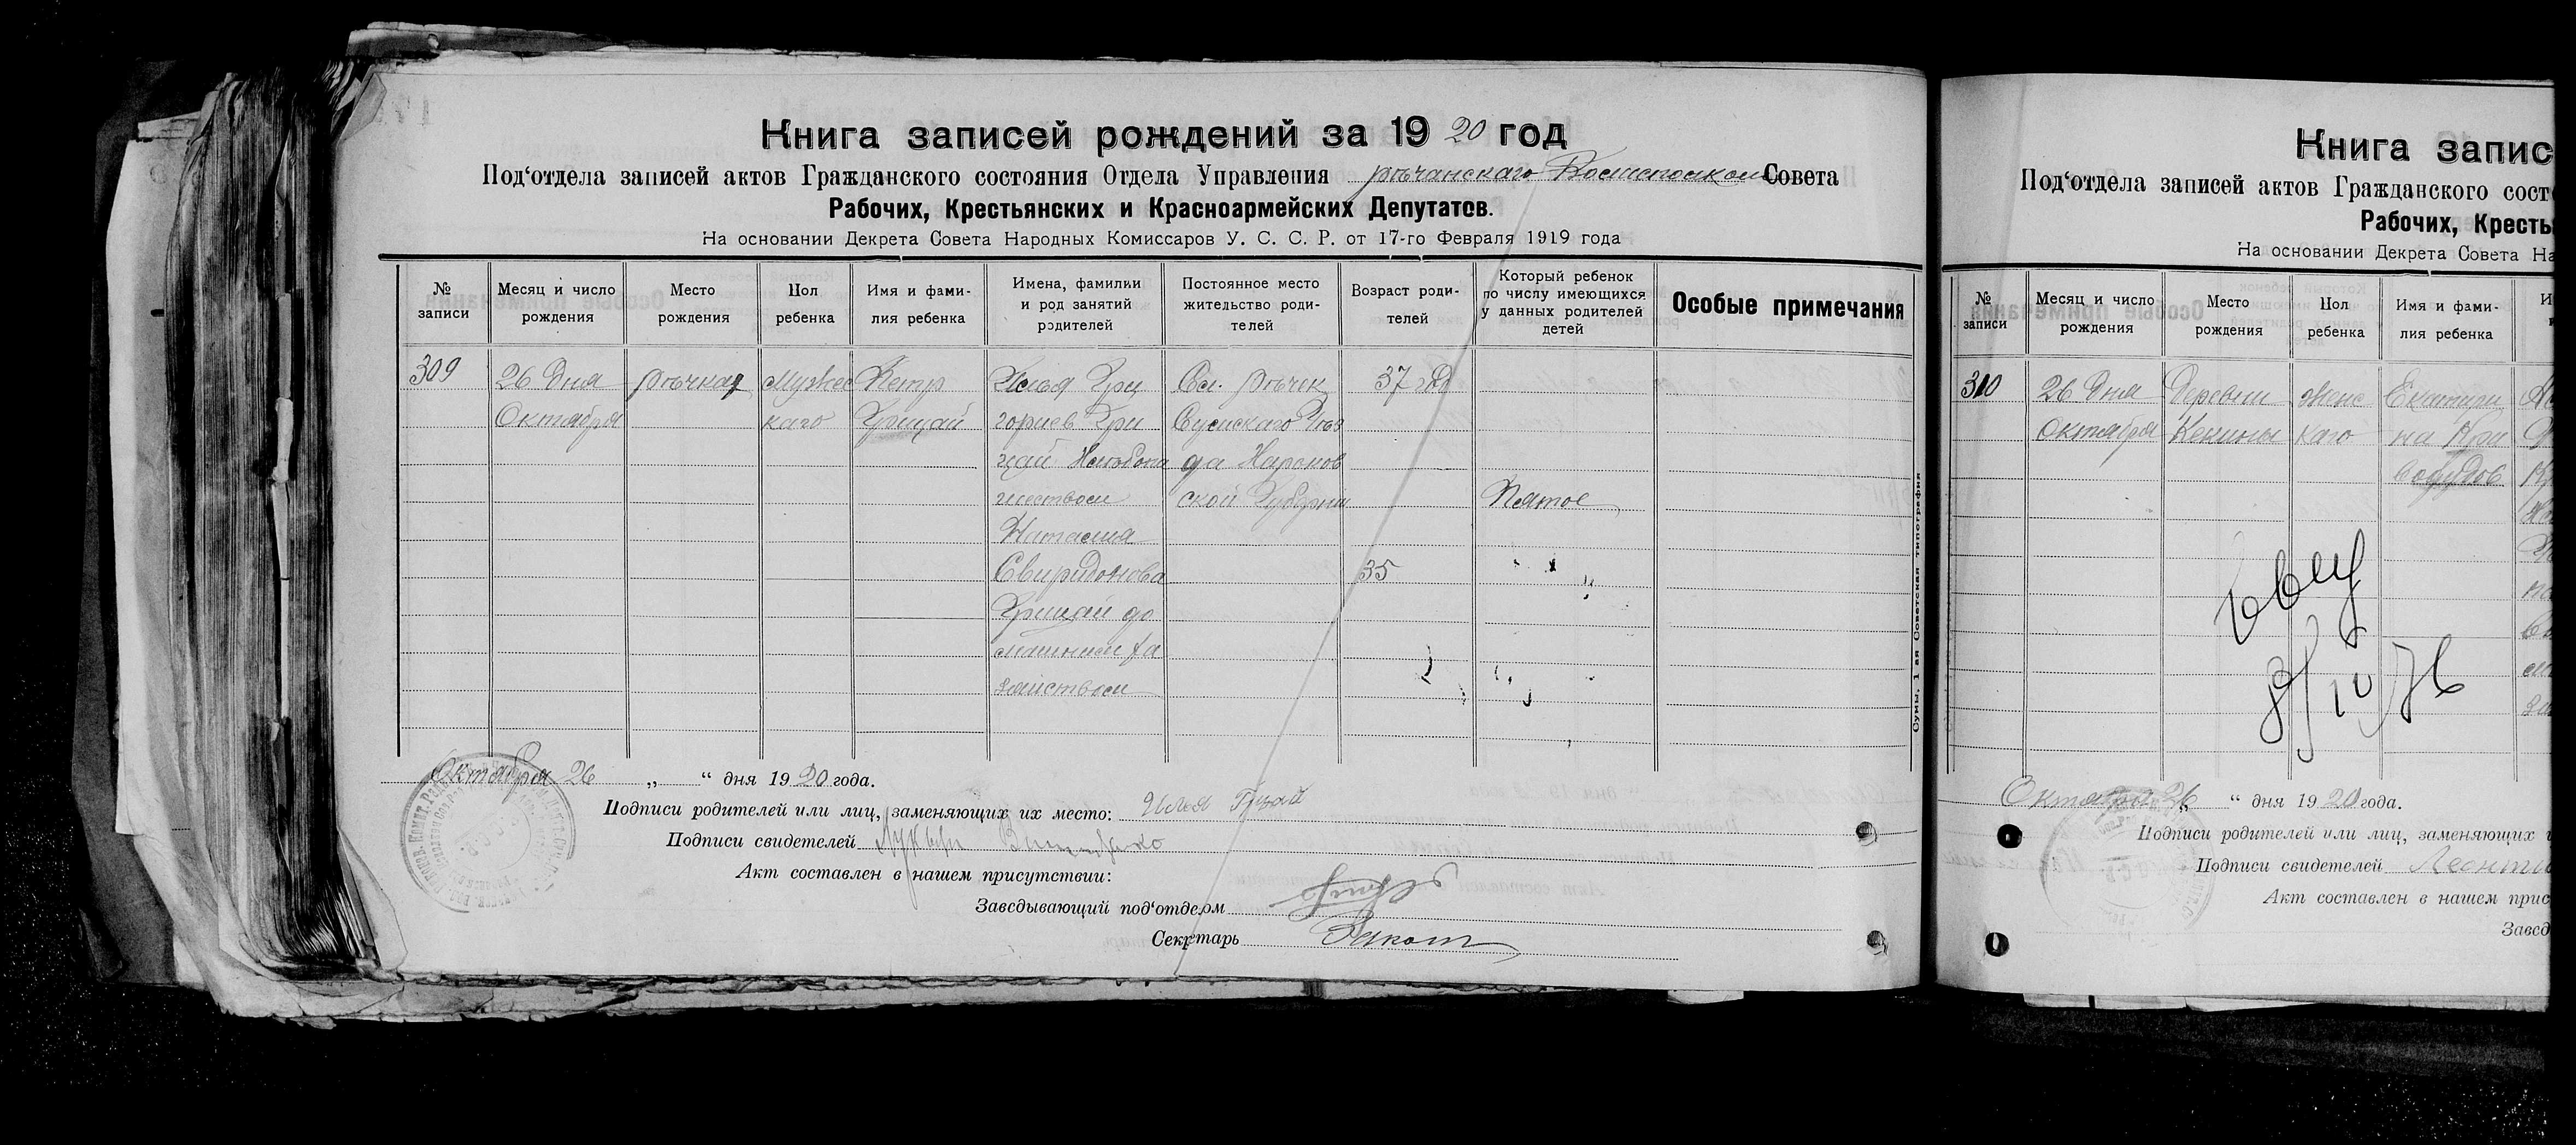 Книга записей рождений за 1920 год
Под‘отдела записей актов Гражданского состояния Отдела Управления рѣчанскаго Совета
Рабочих, Крестьянских и Красноармейских Депутатов.
На основании Декрета Совета Народных Комиссаров У. С. С. Р. от 17-го Февраля 1919 года
№ записи
Месяц и число рождения
Место рождения
Пол ребенка
Имя и фами-
лия ребенка
Имена, фамилии
и род занятий
родителей
Постоянное место
жительство роди-
телей
Возраст роди-
телей
Который ребенок
по числу имеющихся
у данных родителей
детей
Особые примечания
309
26 дня
Октября
рѣчка
Мужес
каго
Петр
Грицай
Илья Гри
гориев Гри
цай Хлѣбопа
шеством
Наталия
Свиридонова
Грицай до
машним ха
зайством
Сл. Рѣчек
Сумскаго Уѣз
да Харков
ской Губернии
37 год
35
Пятое
Сумы, 1-ая Советская типография
Октября 26 „ “ дня 1920 года.
Подписи родителей или лиц, заменяющих их место: Илья Грицай
Подписи свидетелей
Акт составлен в нашем присутствии:
Заведывающий под‘отделом
Секретарь
Книга запис
Под‘отдела записей актов Гражданского сост
Рабочих, Кресть
На основании Декрета Совета На
№ записи
Месяц и число рождения
Место рождения
Пол ребенка
Имя и фами-
лия ребенка
310
26 дня
Октября
Деревни
Кекины
женс
каго
Екатери
на
Октября 26 „ “ дня 1920 года.
Подписи родителей или лиц, заменяющих
Подписи свидетелей Леонти
Акт составлен в нашем прис
Завед